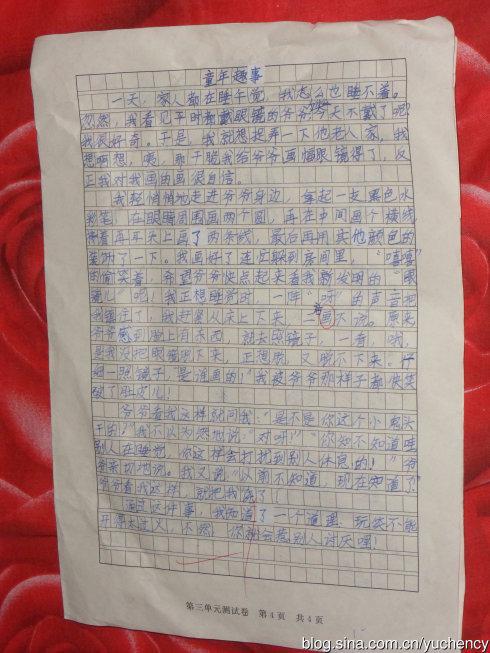 童年趣事
一天，家人都在睡午觉，我怎么也睡不着。
忽然，我看见平时都戴眼镜的爷爷今天不戴了呢？
我很好奇。于是，我就想捉弄一下他老人家，我
想啊想，噢，那干脆我给爷爷画幅眼镜得了，反
正我对我画的画很自信。
我轻悄悄地走进爷爷身边，拿起一支黑色水
彩笔，在眼睛周围画两个圆，再在中间画个横线
接着再耳朵上画了两条线，最后再用其他颜色的
装饰了一下。我画好了连忙躲到房间里，“嘻嘻”
的偷笑着，希望爷爷快点起来看我新发明的“眼
镜儿”吧！我正想睡觉时，一阵“呀”的声音把
我惊住了，我赶紧从床上下来，一看画不说。原来
爷爷感到脸上有东西，就去照镜子，一看，哦，
是我没把眼镜脱下来，正想脱，又脱不下来。仔
细一照镜子“是谁画的！”我被爷爷那样子都快笑
破了肚皮儿！
爷爷看我这样就问我：“是不是你这个小鬼头
干的！”我不以为然地说：“对呀！”“你知不知道
别人在睡觉，你这样会打扰到别人休息的！”爷
爷亲切地说。我又说“以前不知道，现在知道了”
爷爷看我这样，就把我
通过这件事，我知道了一个道理：玩笑不能
开得太过火，不然，你就会惹别人讨厌哩！
第三单元测试卷 第4页 共4页
blog.sina.com.cn/yuchency